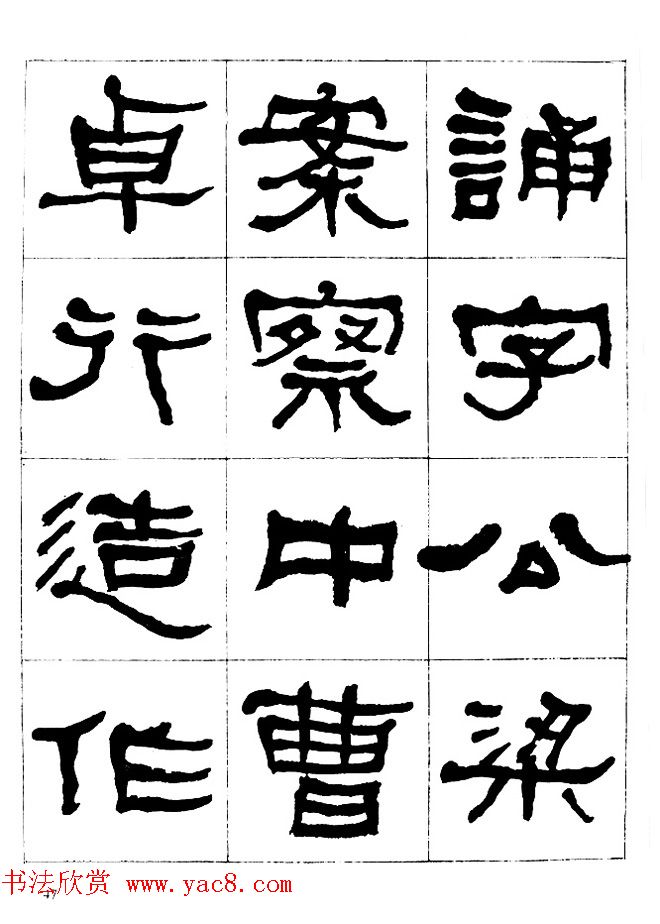 誦字公梁
案察中曹
卓行造作
书法欣赏 www.yac8.com